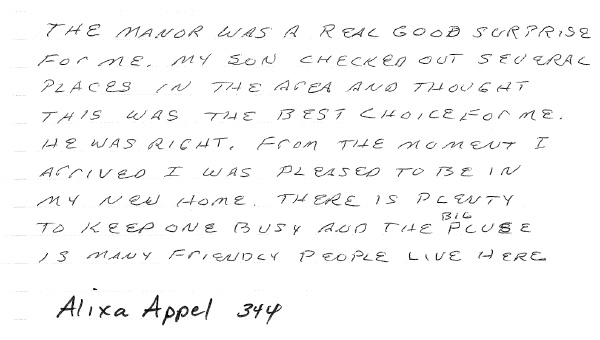 THE MANOR WAS A REAL GOOD SURPRISE
FOR ME. MY SON CHECKED OUT SEVERAL
PLACES IN THE AREA AND THOUGHT
THIS WAS THE BEST CHOICE FOR ME.
HE WAS RIGHT. FROM THE MOMENT I
ARRIVED I WAS PLEASED TO BE IN
MY NEW HOME. THERE IS PLENTY
TO KEEP ONE BUSY AND THE BIG PLUSE
IS MANY FRIENDLY PEOPLE LIVE HERE
Alixa Appel 344